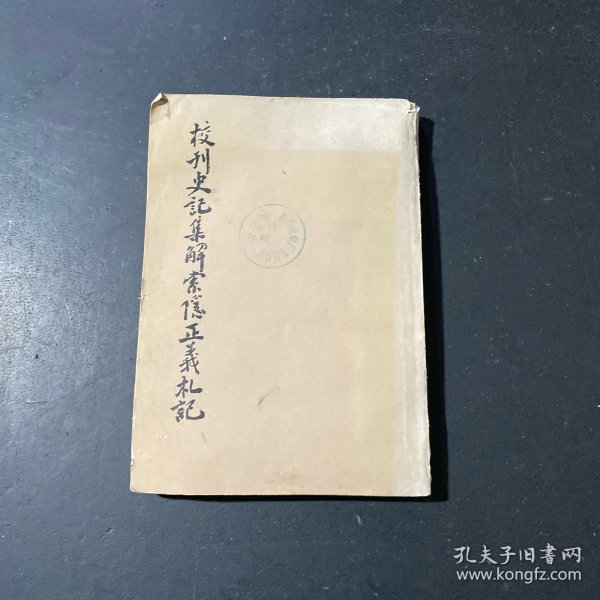 校刊史記集解索隱正義札記
孔夫子旧書网
www.kongfz.com